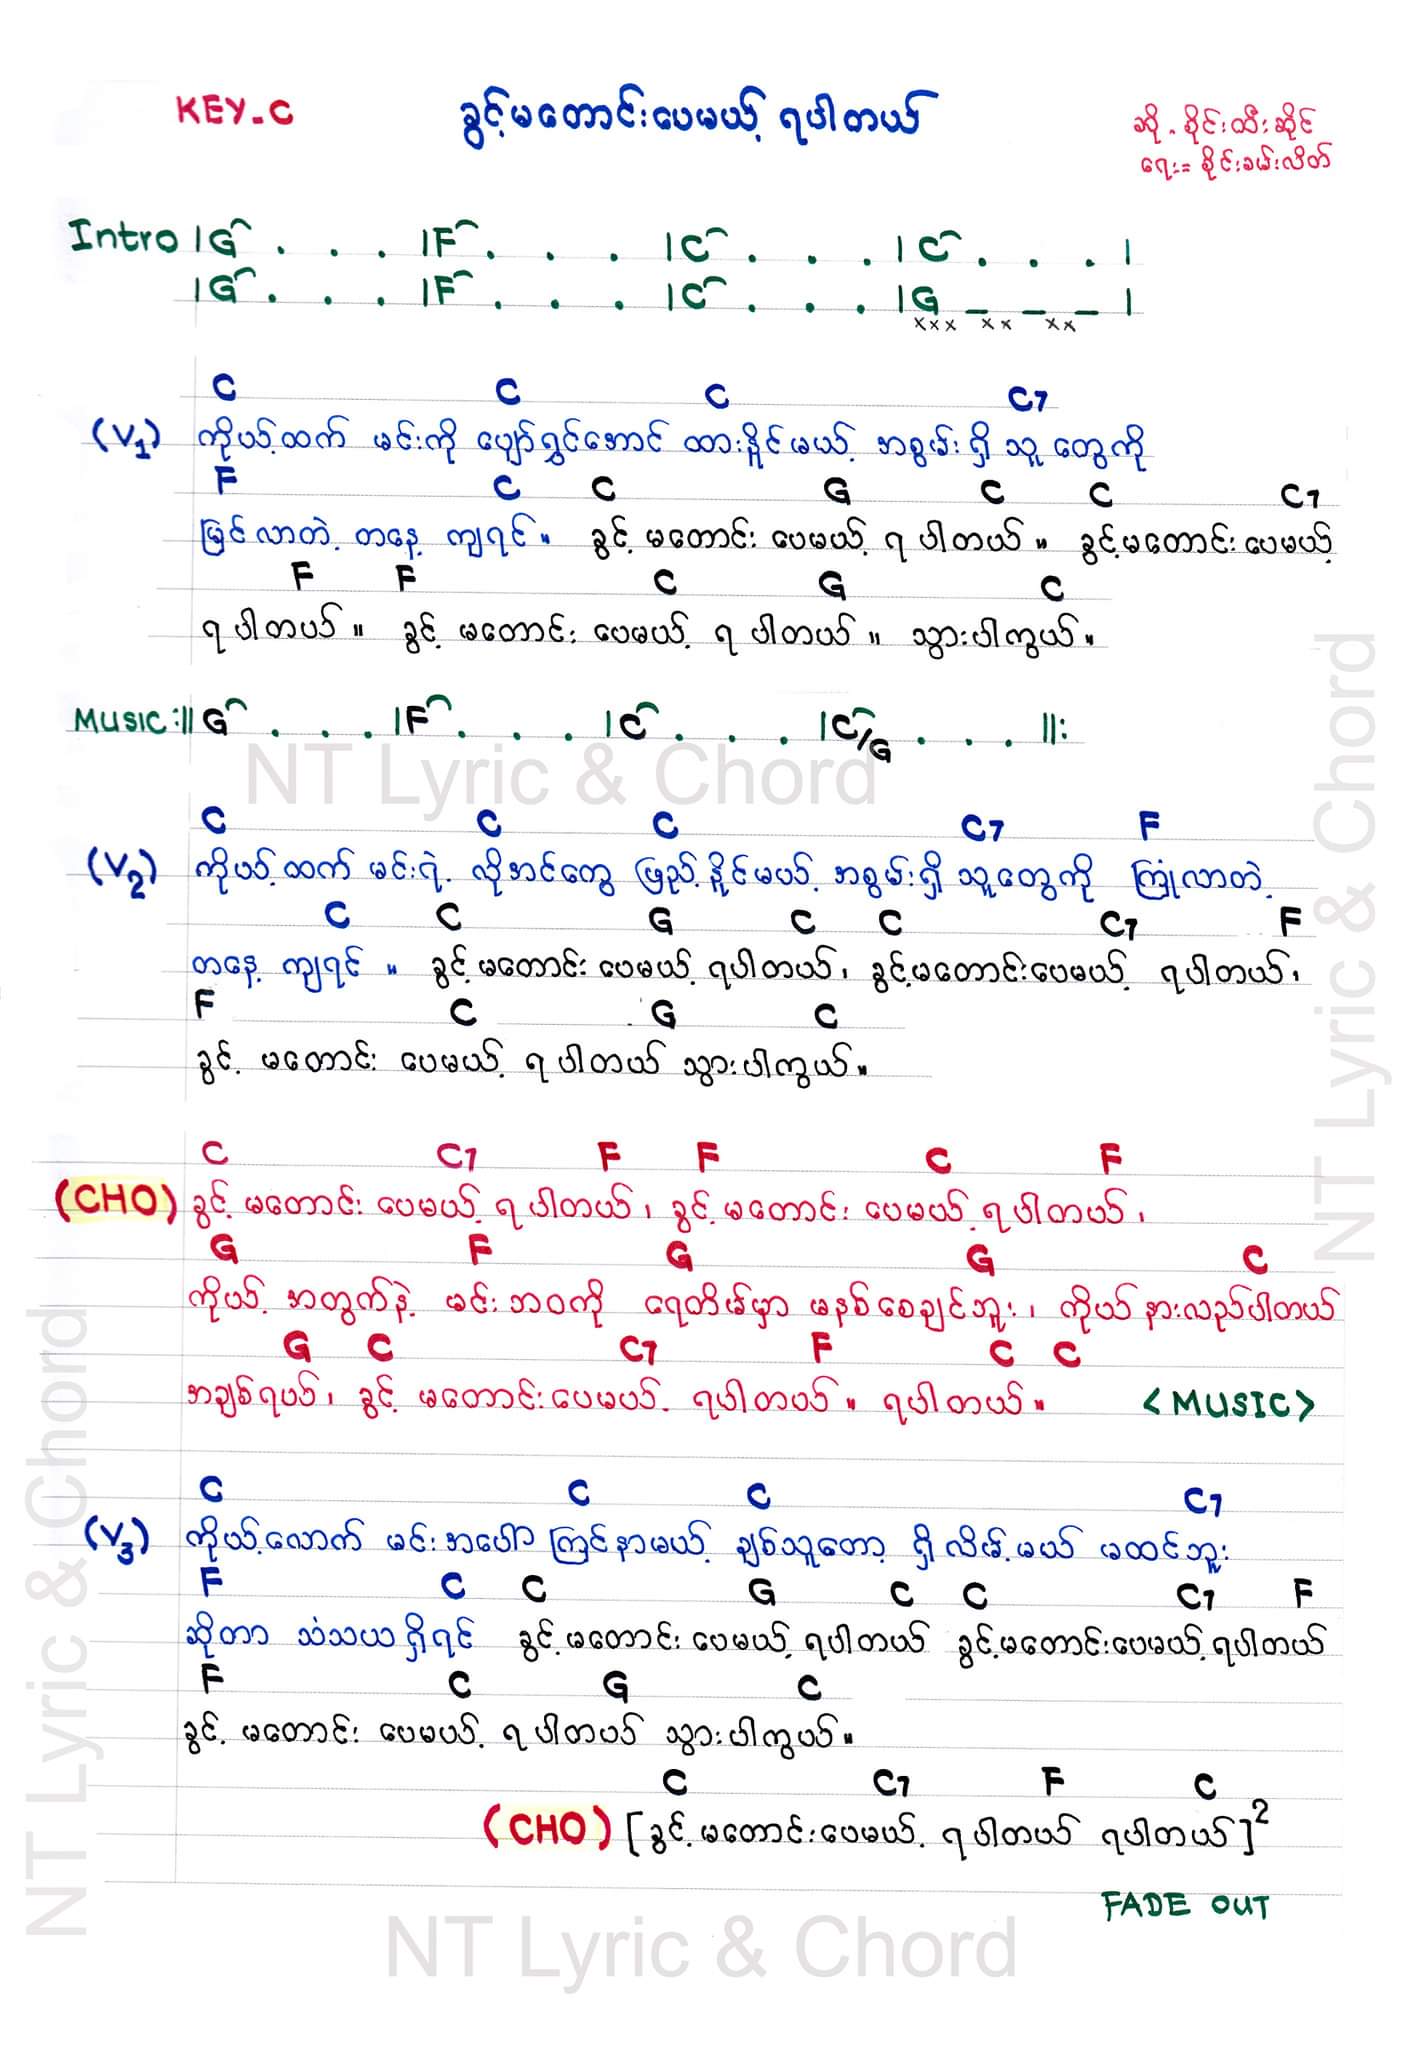 KEY-C
ခွင့်မတောင်းပေမယ့် ရပါတယ်
ဆို - စိုင်းထီးဆိုင်
ရေး = စိုင်းခမ်းလိတ်
Intro |G . . . |F . . . |C . . . |C . . . |
|G . . . |F . . . |C . . . |G _ _ _ |
xxx xx xx
C C C C7
(V1) ကိုယ့်ထက် မင်းကို ပျော်ရွှင်အောင် ထားနိူင်မယ့် အစွမ်းရှိ သူ တွေကို
F C C G C C C7
မြင်လာတဲ့ တနေ့ ကျရင်။ ခွင့် မတောင်း ပေမယ့် ရ ပါတယ်။ ခွင့်မတောင်း ပေမယ့်
F F C G C
ရ ပါတယ်။ ခွင့် မတောင်း ပေမယ့် ရ ပါတယ်။ သွားပါကွယ်။
MUSIC :|| G . . . |F . . . |C . . . |C/G . . . ||:
C C C C7 F
(V2) ကိုယ့်ထက် မင်းရဲ့ လိုအင်တွေ ဖြည့်နိူင်မယ့် အစွမ်းရှိ သူတွေကို ကြုံလာတဲ့
C C G C C C7 F
တနေ့ ကျရင်။ ခွင့်မတောင်း ပေမယ့် ရပါတယ်၊ ခွင့်မတောင်းပေမယ့် ရပါတယ်၊
F C G C
ခွင့် မတောင်း ပေမယ့် ရ ပါတယ် သွားပါကွယ်။
C C7 F F C F
(CHO) ခွင့် မတောင်း ပေမယ့် ရ ပါတယ်၊ ခွင့် မတောင်း ပေမယ့် ရ ပါတယ်၊
G F G G C
ကိုယ့် အတွက်နဲ့ မင်းဘဝကို ရေတိမ်မှာ မနစ်စေချင်ဘူး၊ ကိုယ်နားလည်ပါတယ်
G C C7 F C C
အချစ်ရယ်၊ ခွင့် မတောင်းပေမယ့် ရပါတယ်။ ရပါတယ်။ <MUSIC>
C C C C7
(V3) ကိုယ့်လောက် မင်းအပေါ် ကြင်နာမယ့် ချစ်သူတော့ ရှိ လိမ့်မယ် မထင်ဘူး
F C C G C C C7 F
ဆိုတာ သံသယရှိရင် ခွင့်မတောင်း ပေမယ့် ရပါတယ် ခွင့်မတောင်းပေမယ့် ရပါတယ်
F C G C
ခွင့် မတောင်း ပေမယ့် ရ ပါတယ် သွားပါကွယ်။
C C7 F C
(CHO) [ခွင့်မတောင်းပေမယ့် ရပါတယ် ရပါတယ်]2
FADE OUT
NT Lyric & Chord
NT Lyric & Chord
NT Lyric & Chord
NT Lyric & Chord